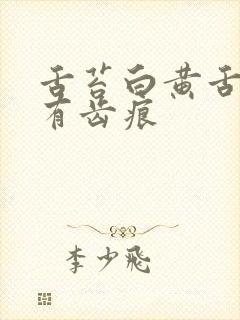 舌苔白黄舌
有齿痕
李少飛